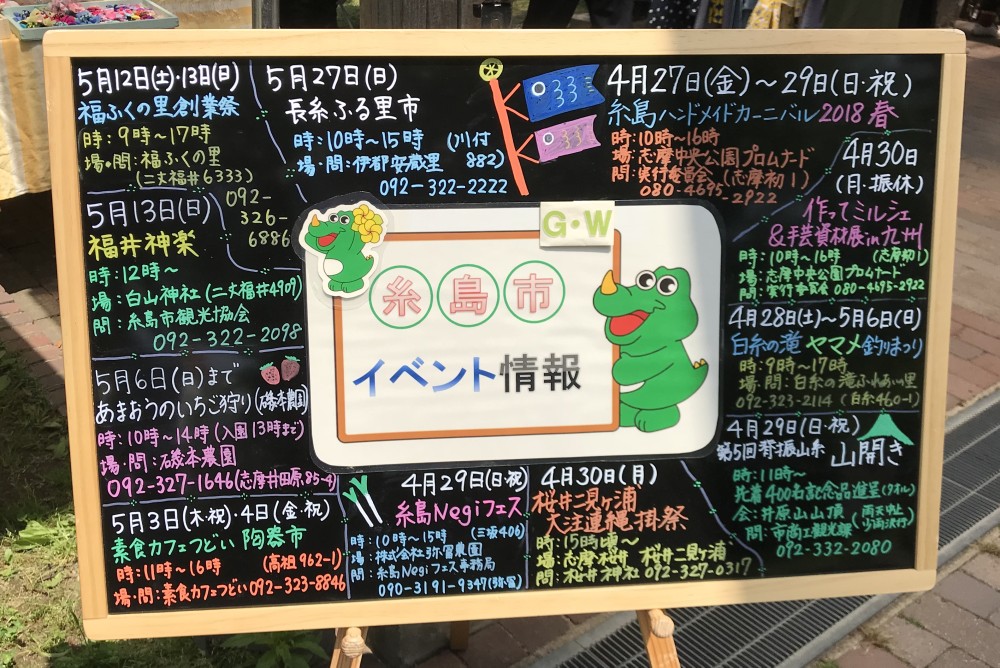 5月12日(土)・13日(日)
福ふくの里創業祭
時:9時〜17時
場・問:福ふくの里
(二丈福井6333)
092-
326-
6886
5月27日(日)
長糸ふる里市
時:10時〜15時 (川付
場・問:伊都安蔵里 882)
092-322-2222
4月27日(金)〜29日(日・祝)
糸島ハンドメイドカーニバル2018春
時:10時〜16時
場:志摩中央公園プロムナード
問:実行委員会(志摩初1)
080-4695-2922
4月30日
(月・振休)
作ってミルシェ
&手芸資材展in九州
時:10時〜16時 (志摩初1)
場:志摩中央公園プロムナード
問:実行委員会 080-4695-2922
5月13日(日)
福井神楽
時:12時〜
場:白山神社(二丈福井4909)
問:糸島市観光協会
092-322-2098
G・W
糸島市
イベント情報
4月28日(土)〜5月6日(日)
白糸の滝 ヤマメ釣りまつり
時:9時〜17時
場・問:白糸の滝ふれあいの里
092-323-2114 (白糸460-1)
5月6日(日)まで
あまおうのいちご狩り(磯本農園)
時:10時〜14時(入園13時まで)
場・問:磯本農園
092-327-1646(志摩井田原85-4)
4月29日(日・祝)
第5回脊振山系 山開き
時:11時〜
先着400名記念品進呈(タオル)
会:井原山山頂 雨天中止
問:市商工観光課
092-332-2080
5月3日(木・祝)・4日(金・祝)
素食カフェつどい 陶器市
時:11時〜16時 (高祖962-1)
場・問:素食カフェつどい092-323-8846
4月29日(日・祝)
糸島Negiフェス
時:10時〜15時 (三坂406)
場:株式会社弥冨農園
問:糸島Negiフェス事務局
090-3191-9347(弥冨)
4月30日(月)
桜井二見ヶ浦
大注連縄掛祭
時:15時頃〜
場:志摩桜井 桜井二見ヶ浦
問:桜井神社 092-327-0317